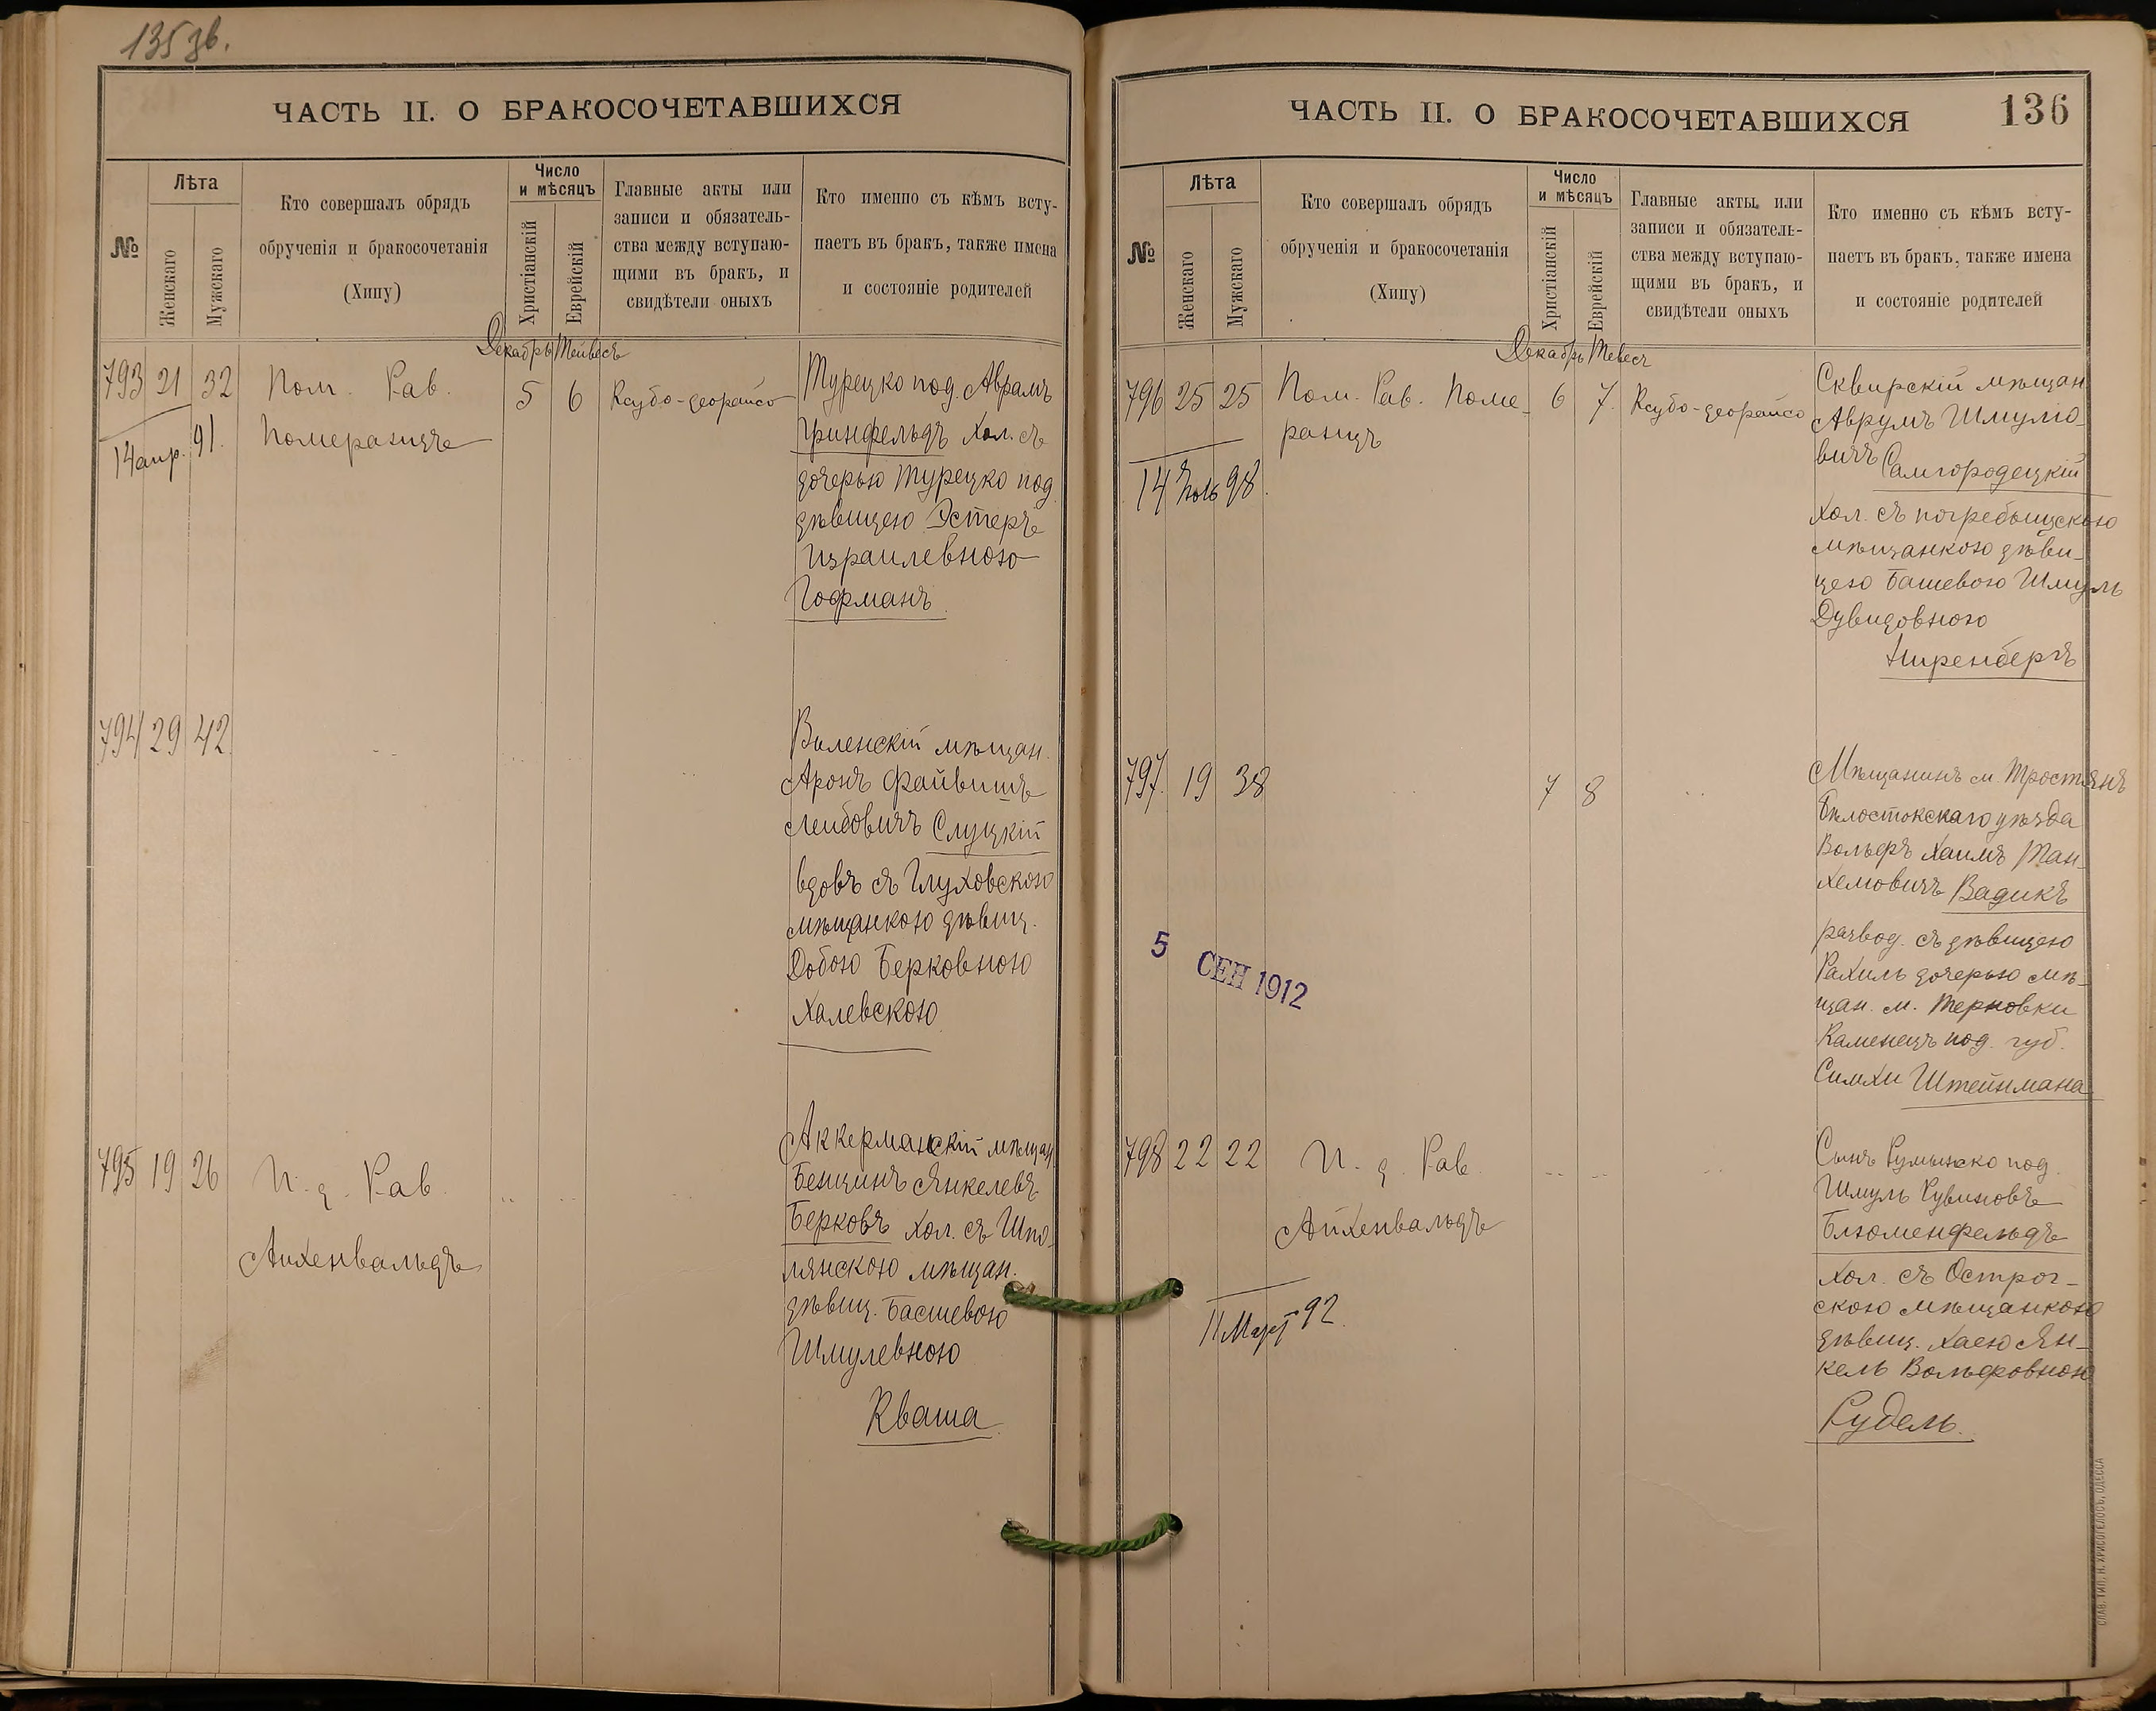 135 зв.
ЧАСТЬ II. О БРАКОСОЧЕТАВШИХСЯ
№
Лѣта
Женскаго
Мужскаго
Кто совершалъ обрядъ
обрученія и бракосочетанія
(Хипу)
Число
и мѣсяцъ
Христіанскій
Еврейскій
Главные акты или
записи и обязатель-
ства между вступаю-
щими въ бракъ, и
свидѣтели оныхъ
Кто именно съ кѣмъ всту-
паетъ въ бракъ, также имена
и состояніе родителей
Декабрь Тейвесъ
793 21 32 Пом. Рав. 5 6 Ксубо-деорайсо
Померанцъ
14 апр. 91.
Турецко под. Аврамъ
Гринфельдъ Хол. съ
дочерью Турецко под
дѣвицею Эстеръ
Израилевною
Гофманъ
794 29 42
Виленскій мѣщан.
Аронъ Файвишъ
Лейбовичъ Слуцкій
вдовъ съ Глуховскою
мѣщанкою дѣвиц.
Добою Берковною
Халевскою
795 19 26 И. д. Рав
Айхенвальдъ
Аккерманскій мѣщан
Бенцинъ Янкелевъ
Берковъ Хол. съ Шпо-
лянскою мѣщан.
дѣвиц. Басшевою
Шмулевною
Кваша
ЧАСТЬ II. О БРАКОСОЧЕТАВШИХСЯ
136
№
Лѣта
Женскаго
Мужскаго
Кто совершалъ обрядъ
обрученія и бракосочетанія
(Хипу)
Число
и мѣсяцъ
Христіанскій
Еврейскій
Главные акты или
записи и обязатель-
ства между вступаю-
щими въ бракъ, и
свидѣтели оныхъ
Кто именно съ кѣмъ всту-
паетъ въ бракъ, также имена
и состояніе родителей
Декабрь Тевесъ
796 25 25 Пом. Рав. Поме- 6 7. Ксубо-деорайсо
ранцъ
14 98.
Сквирскій мѣщан
Аврумъ Шмулю-
вичъ Самгородецкій
Хол. съ погребыщскою
мѣщанкою дѣви-
цею Башевою Шмуль
Дувидовною
Ниренбергъ
797. 19 38 7 8
Мѣщанинъ м. Тростянъ
Бѣлостокскаго уѣзда
Вольфъ Хаимъ Тан-
хемовичъ Вадикъ
развод. съ дѣвицею
Рахиль дочерью мѣ-
щан. м. Терновки
Каменецъ под. губ.
Симхи Штейнмана
5 СЕН 1912
798 22 22 И. д. Рав
Айхенвальдъ
11 Март 92.
Сынъ Румынско под.
Шмуль Рувиновъ
Блюменфельдъ
Хол. съ Острог-
скою мѣщанкою
дѣвиц. Хаею Ян-
кель Вольфовною
Рудель.
СЛАВ. ТИП. Н. ХРИСОГЕЛОСЪ, ОДЕССА